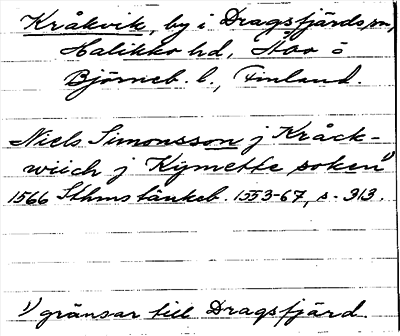 Kråkvik, by i Dragsfjärds sn,
Halikko hd, Åbo ö
Björneb. l., Finland.
Niels Simonsson j Kråck-
wiich j Kymette soken¹⁾
1566 Sthms tänkeb. 1553-67, s. 313.
¹⁾ gränsar till Dragsfjärd.